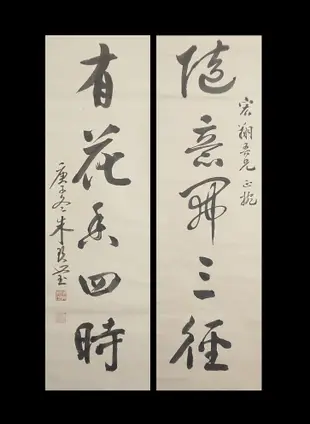 宏翔吾兄正
隨意開三徑
有花香四時
庚子冬朱玖瑩